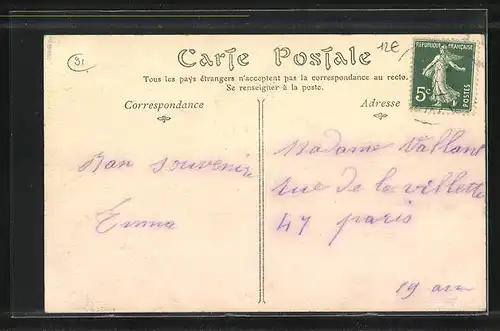 31
12€
Carte Postale
Tous les pays étrangers n'acceptent pas la correspondance au recto.
Se renseigner à la poste.
Correspondance
Adresse
REPUBLIQUE FRANÇAISE
5c
POSTES
Bon souvenir
Emma
Madame Vallant
rue de la villette
47 paris
19 arr